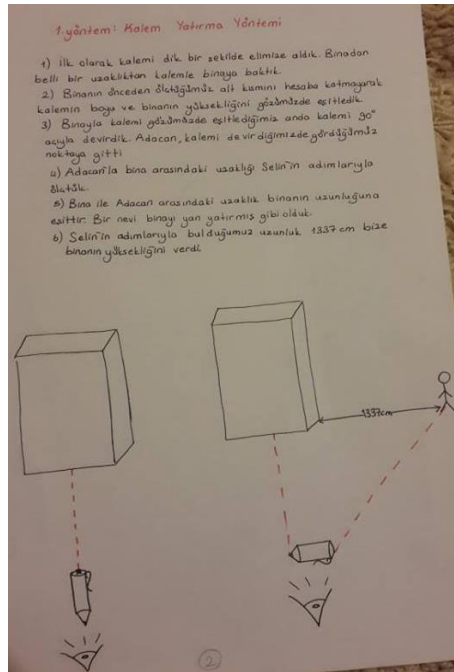 1.yöntem: Kalem Yatırma Yöntemi
1) İlk olarak kalemi dik bir şekilde elimize aldık. Binadan
belli bir uzaklıktan kalemle binaya baktık.
2) Binanın önceden ölçtüğümüz alt kısmını hesaba katmayarak
kalemin boyu ve binanın yüksekliğini gözümüzde eşitledik.
3) Binayla kalemi gözümüzde eşitlediğimiz anda kalemi 90°
açıyla devirdik. Adacan, kalemi devirdiğimizde gördüğümüz
noktaya gitti
4) Adacan'la bina arasındaki uzaklığı Selin'in adımlarıyla
ölçtük.
5) Bina ile Adacan arasındaki uzaklık binanın uzunluğuna
eşittir. Bir nevi binayı yan yatırmış gibi olduk.
6) Selin'in adımlarıyla bulduğumuz uzunluk 1337 cm bize
binanın yüksekliğini verdi.
1337cm
2